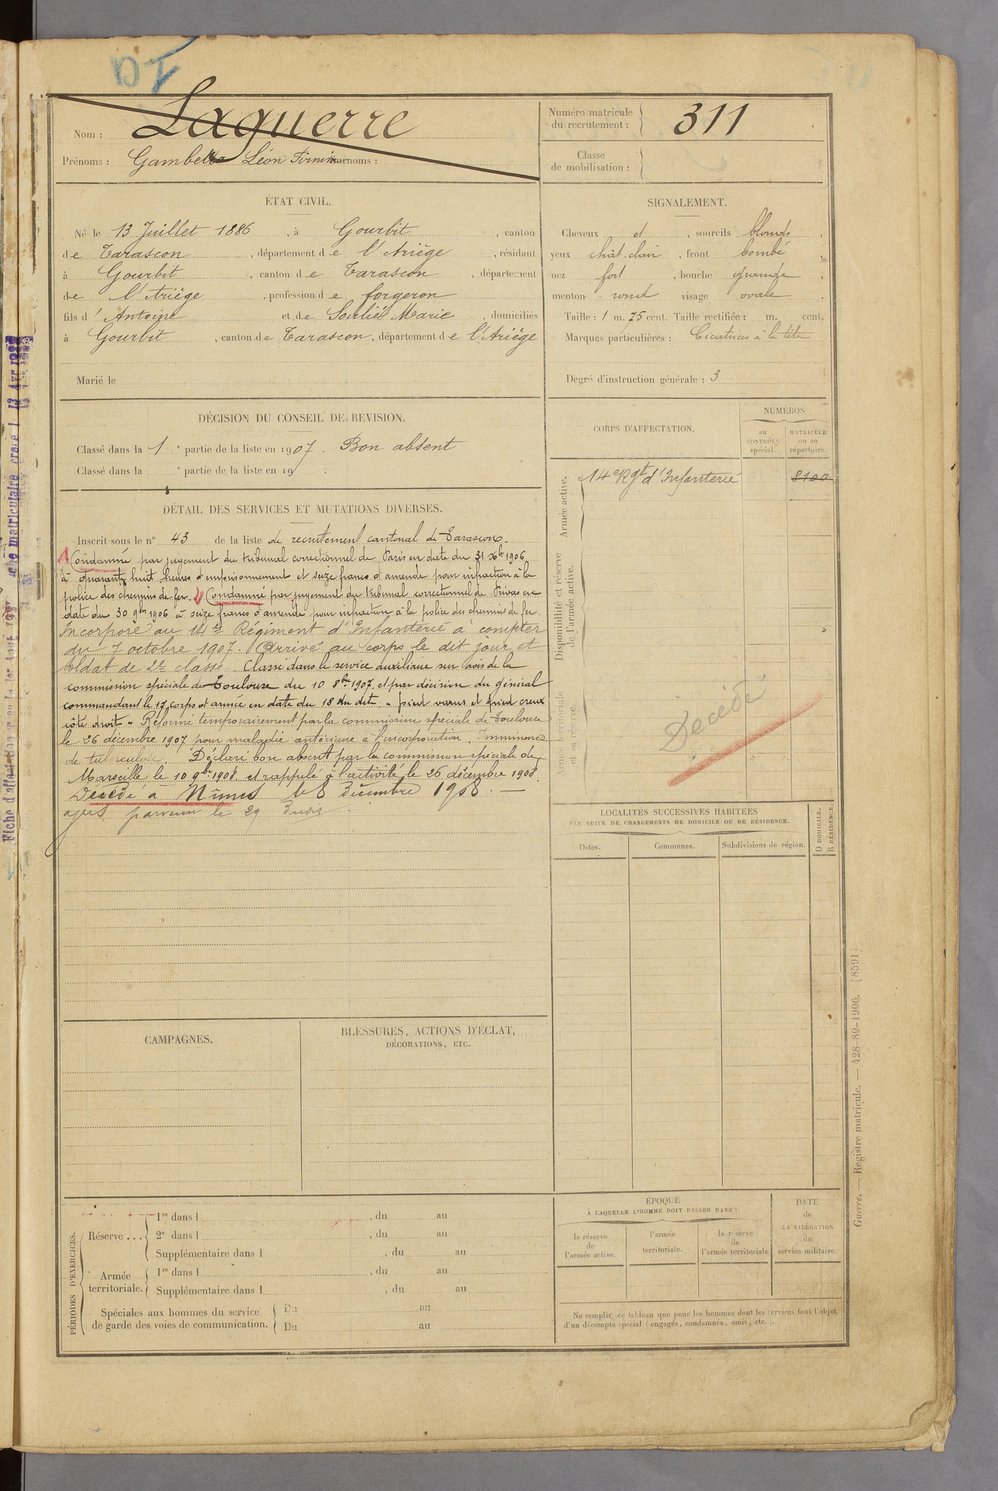 Nom : Laguerre
Prénoms : Gambetta Léon Firmin Surnoms :
Numéro matricule
du recrutement : 311
Classe
de mobilisation :
ÉTAT CIVIL.
Né le 13 Juillet 1886, à Gourbit, canton
de Tarascon, département de l'Ariège, résidant
à Gourbit, canton de Tarascon, département
de l'Ariège, profession de forgeron
fils d'Antoine et de Soulié Marie, domiciliés
à Gourbit, canton de Tarascon, département de l'Ariège
Marié le
SIGNALEMENT.
Cheveux et, sourcils blonds
yeux chât. clair, front bombé
nez fort, bouche grande
menton rond visage ovale
Taille : 1 m. 75 cent. Taille rectifiée : m. cent.
Marques particulières : Cicatrices à la tête
Degré d'instruction générale : 3
DÉCISION DU CONSEIL DE REVISION.
Classé dans la 1e partie de la liste en 1907. Bon absent
Classé dans la e partie de la liste en 19 :
DÉTAIL DES SERVICES ET MUTATIONS DIVERSES.
Inscrit sous le n° 43 de la liste de recrutement cantonal de Tarascon.
Condamné par jugement du tribunal correctionnel de Paris en date du 31 Xbre 1906
à quarante huit heures d'emprisonnement et seize francs d'amende pour infraction à la
police des chemins de fer. Condamné par jugement du tribunal correctionnel de Privas en
date du 30 9bre 1906 à seize francs d'amende pour infraction à la police des chemins de fer.
Incorporé au 14e Régiment d'Infanterie à compter
du 7 octobre 1907. Arrivé au corps le dit jour et
soldat de 2e classe. Classé dans le service auxiliaire sur avis de la
commission spéciale de Toulouse du 10 8bre 1907 et par décision du général
commandant le 17e corps d'armée en date du 18 du dit. - pied varus et pied creux
côté droit - Réformé temporairement par la commission spéciale de Toulouse
le 26 décembre 1907 pour maladie antérieure à l'incorporation. Imminence
de tuberculose. Déclaré bon absent par la commission spéciale de
Marseille le 10 9bre 1908 et rappelé à l'activité le 26 décembre 1908.
Décédé à Nîmes le 8 décembre 1908. —
parvenu le 29
CORPS D'AFFECTATION.
NUMÉROS
au
CONTRÔLE
spécial.
MATRICULE
ou au
répertoire.
Armée active.
14e Rgt d'Infanterie 8100
Disponibilité et réserve
de l'armée active.
Armée territoriale
et sa réserve.
Décédé
LOCALITÉS SUCCESSIVES HABITÉES
PAR SUITE DE CHANGEMENTS DE DOMICILE OU DE RÉSIDENCE.
Dates.
Communes.
Subdivisions de région.
D DOMICILE.
R RÉSIDENCE.
CAMPAGNES.
BLESSURES, ACTIONS D'ÉCLAT,
DÉCORATIONS, ETC.
PÉRIODES D'EXERCICES.
Réserve ...
1re dans l , du au
2e dans l , du au
Supplémentaire dans l , du au
Armée
territoriale.
1re dans l , du au
Supplémentaire dans l , du au
Spéciales aux hommes du service
de garde des voies de communication.
Du au
Du au
ÉPOQUE
À LAQUELLE L'HOMME DOIT PASSER DANS :
la réserve
de
l'armée active.
l'armée
territoriale.
la réserve
de
l'armée territoriale
DATE
de
LA LIBÉRATION
du
service militaire.
Ne remplir ce tableau que pour les hommes dont les services font l'objet
d'un décompte spécial (engagés, condamnés, omis, etc.).
Guerre. — Registre matricule. — 428-89-1906. [8591]